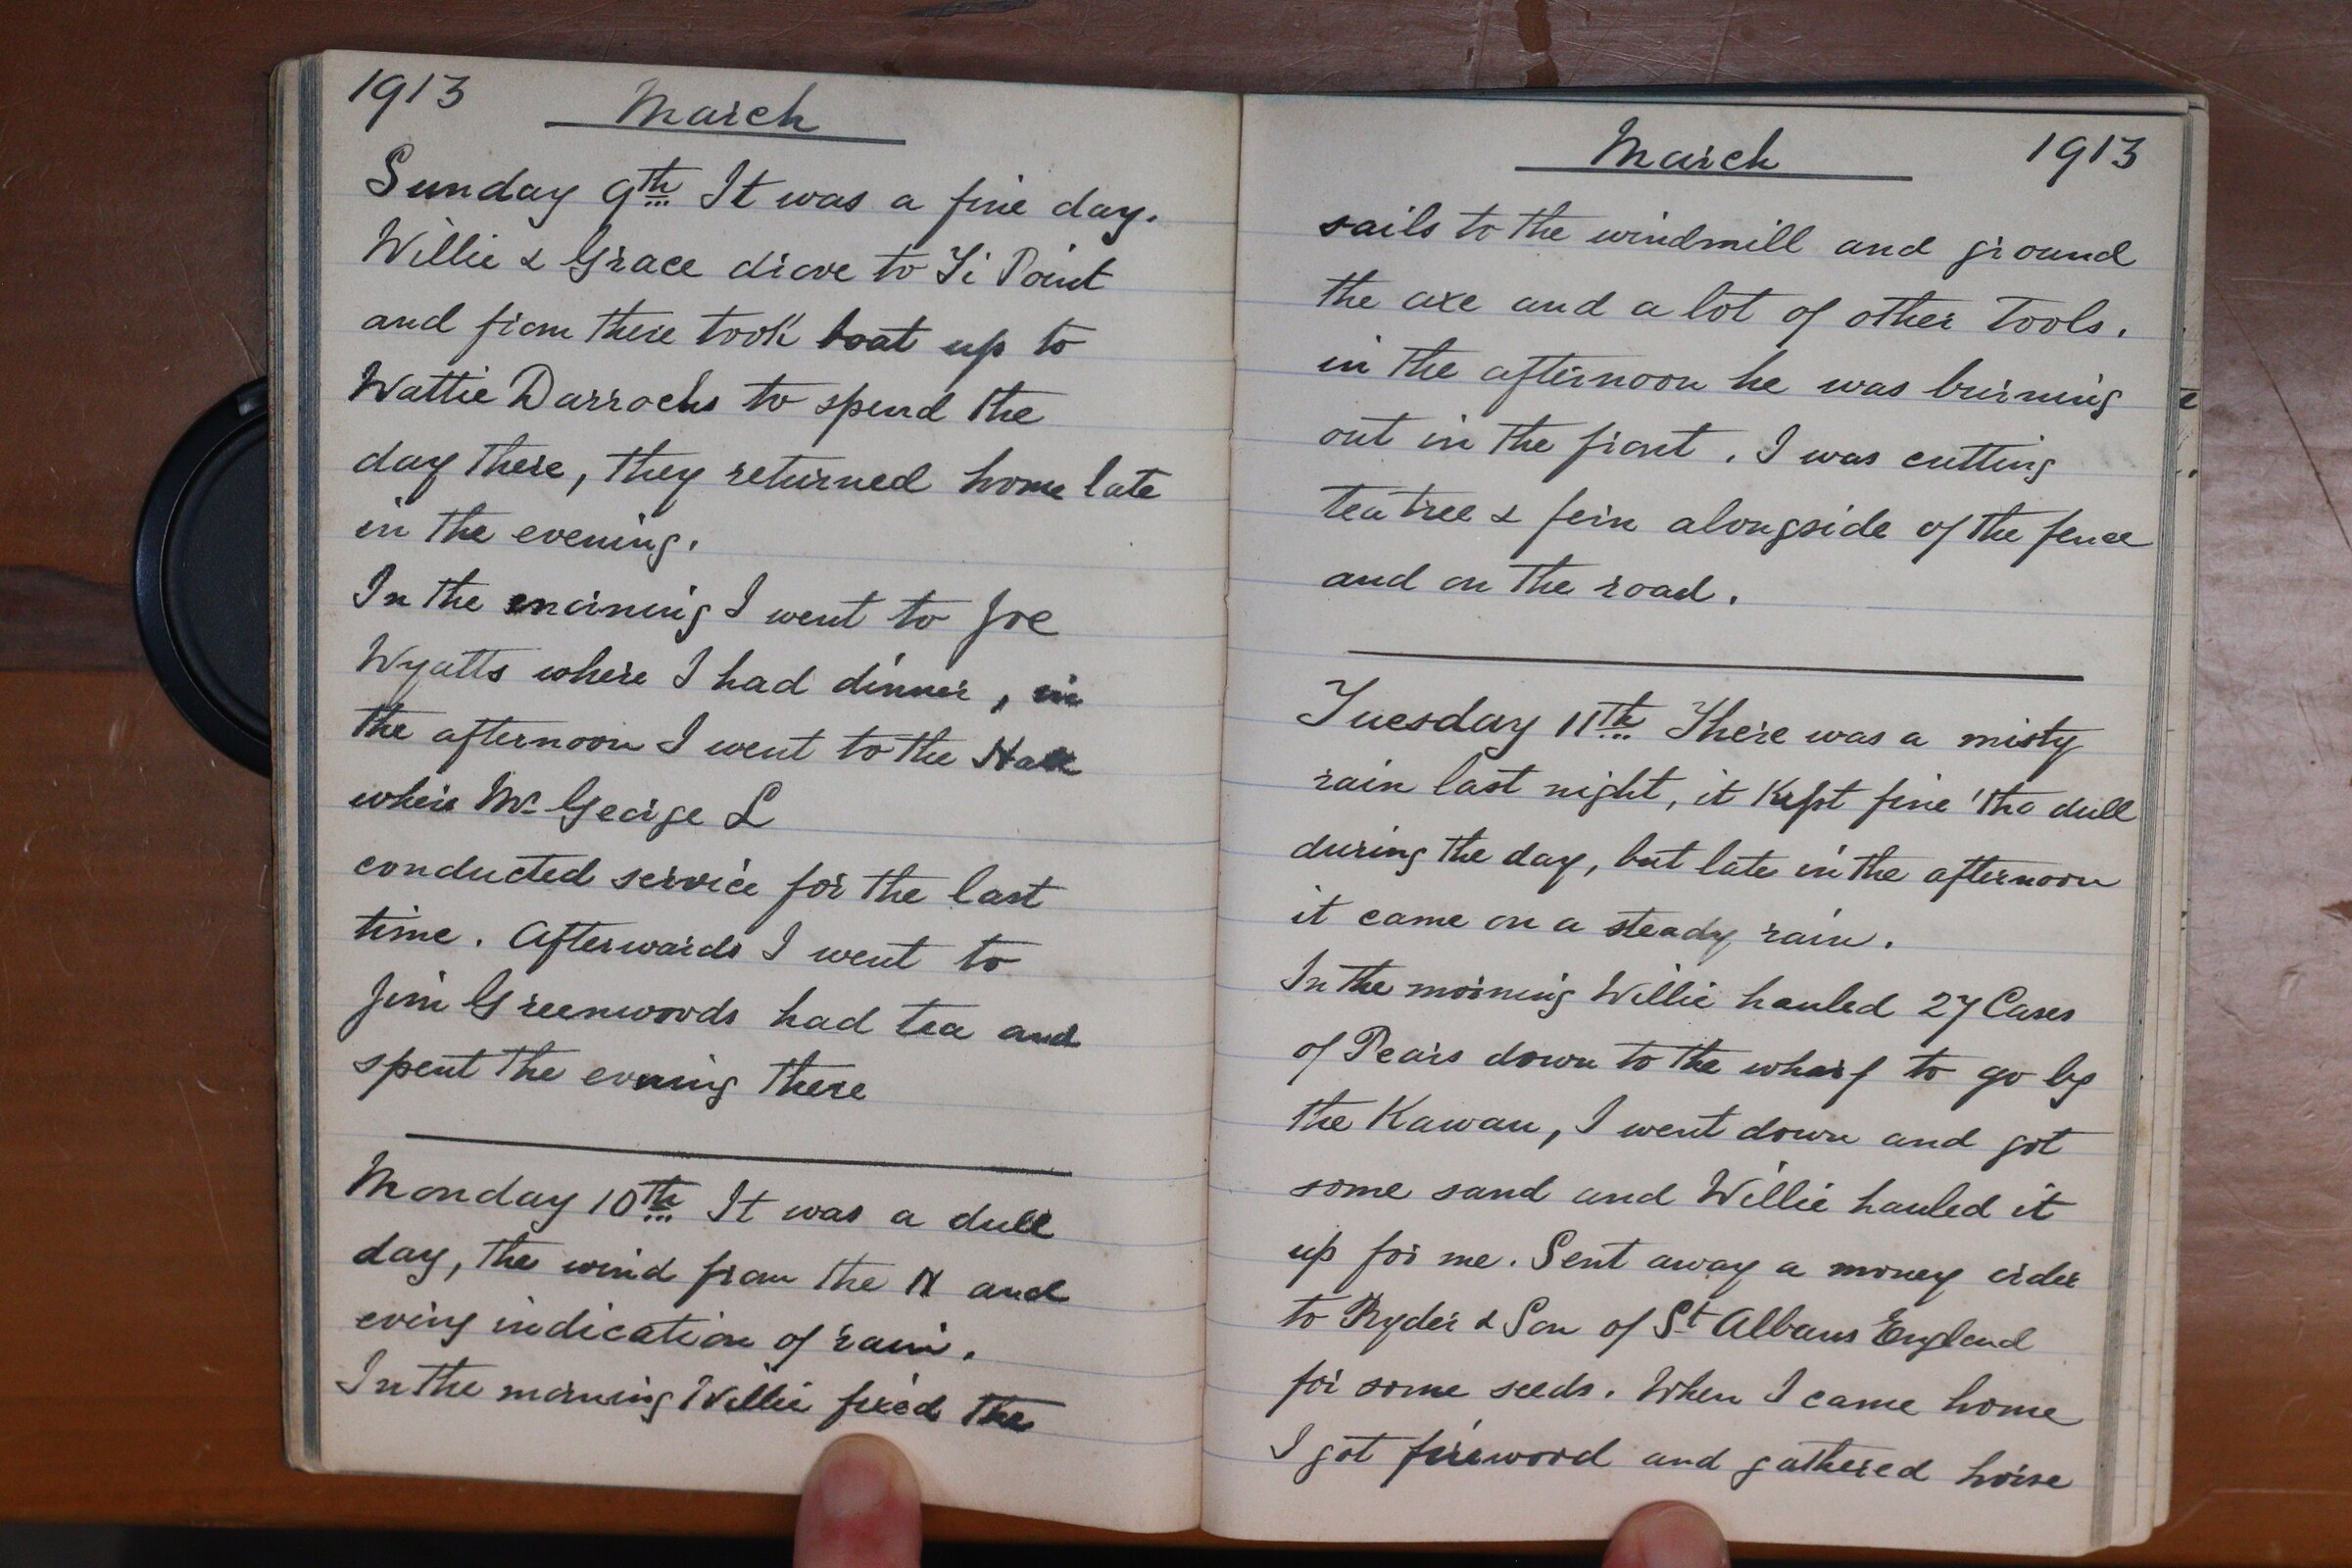 1913
March
Sunday 9th It was a fine day.
Willie & Grace drove to Ti Point
and from there took boat up to
Wattie Darrochs to spend the
day there, they returned home late
in the evening.
In the morning I went to Joe
Wyatts where I had dinner, in
the afternoon I went to the Hall
where Mr George L
conducted service for the last
time. Afterwards I went to
Jim Greenwoods had tea and
spent the evening there
Monday 10th It was a dull
day, the wind from the N and
every indication of rain.
In the morning Willie fixed the
March 1913
sails to the windmill and ground
the axe and a lot of other tools.
in the afternoon he was burning
out in the front. I was cutting
tea tree & fern alongside of the fence
and on the road.
Tuesday 11th There was a misty
rain last night, it kept fine 'tho dull
during the day, but late in the afternoon
it came on a steady rain.
In the morning Willie hauled 27 Cases
of Pears down to the wharf to go by
the Kawau, I went down and got
some sand and Willie hauled it
up for me. Sent away a money order
to Ryder & Son of St Albans England
for some seeds. When I came home
I got firewood and gathered horse